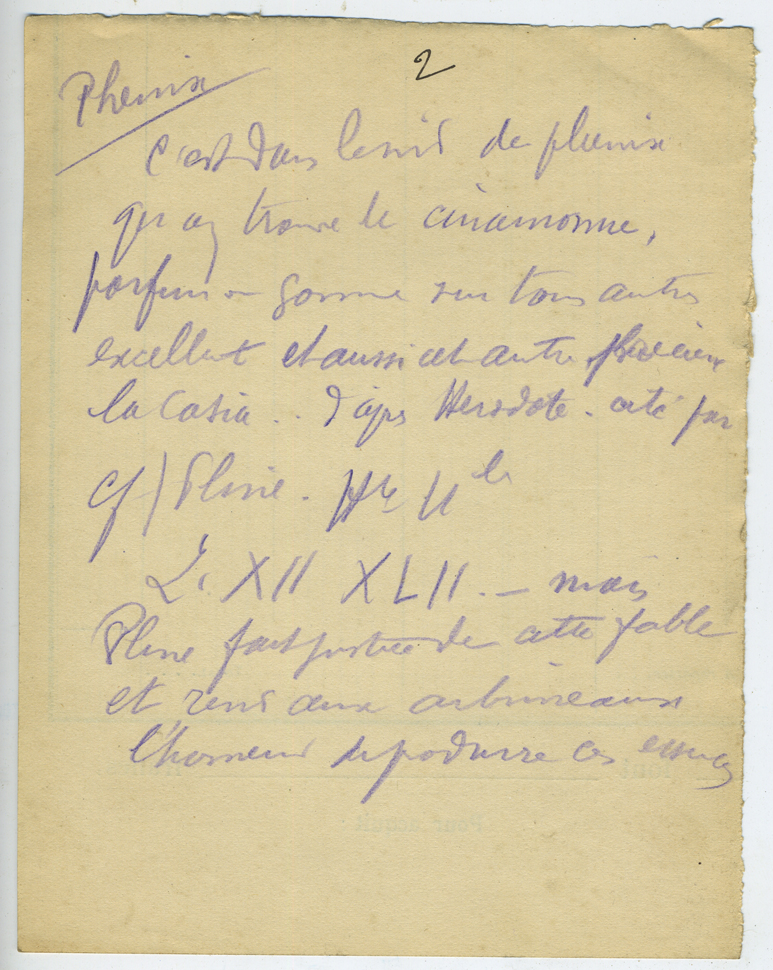 2
Phenix
C'est dans le nid de phenix
qu on trouve le cinamonme,
parfum ou gomme sur tous autres
excellent et aussi cet autre précieux
la Casia .. d'apres Herodote. cité par
cf) Pline. Hre Nlle
L. XII XLII. — mais
Pline fait justice de cette fable
et rend aux arbrisseaux
l'honneur de produire ces essences
Pour acquit